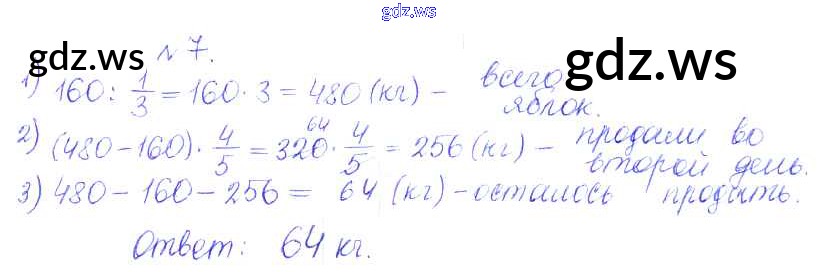 gdz.ws
gdz.ws
gdz.ws
№7.
1) 160 : 1/3 = 160 · 3 = 480 (кг) – всего яблок.
2) (480 – 160) · 4/5 = 320 · 4/5 = 256 (кг) – продали во второй день.
64
3) 480 – 160 – 256 = 64 (кг) – осталось продать.
Ответ: 64 кг.